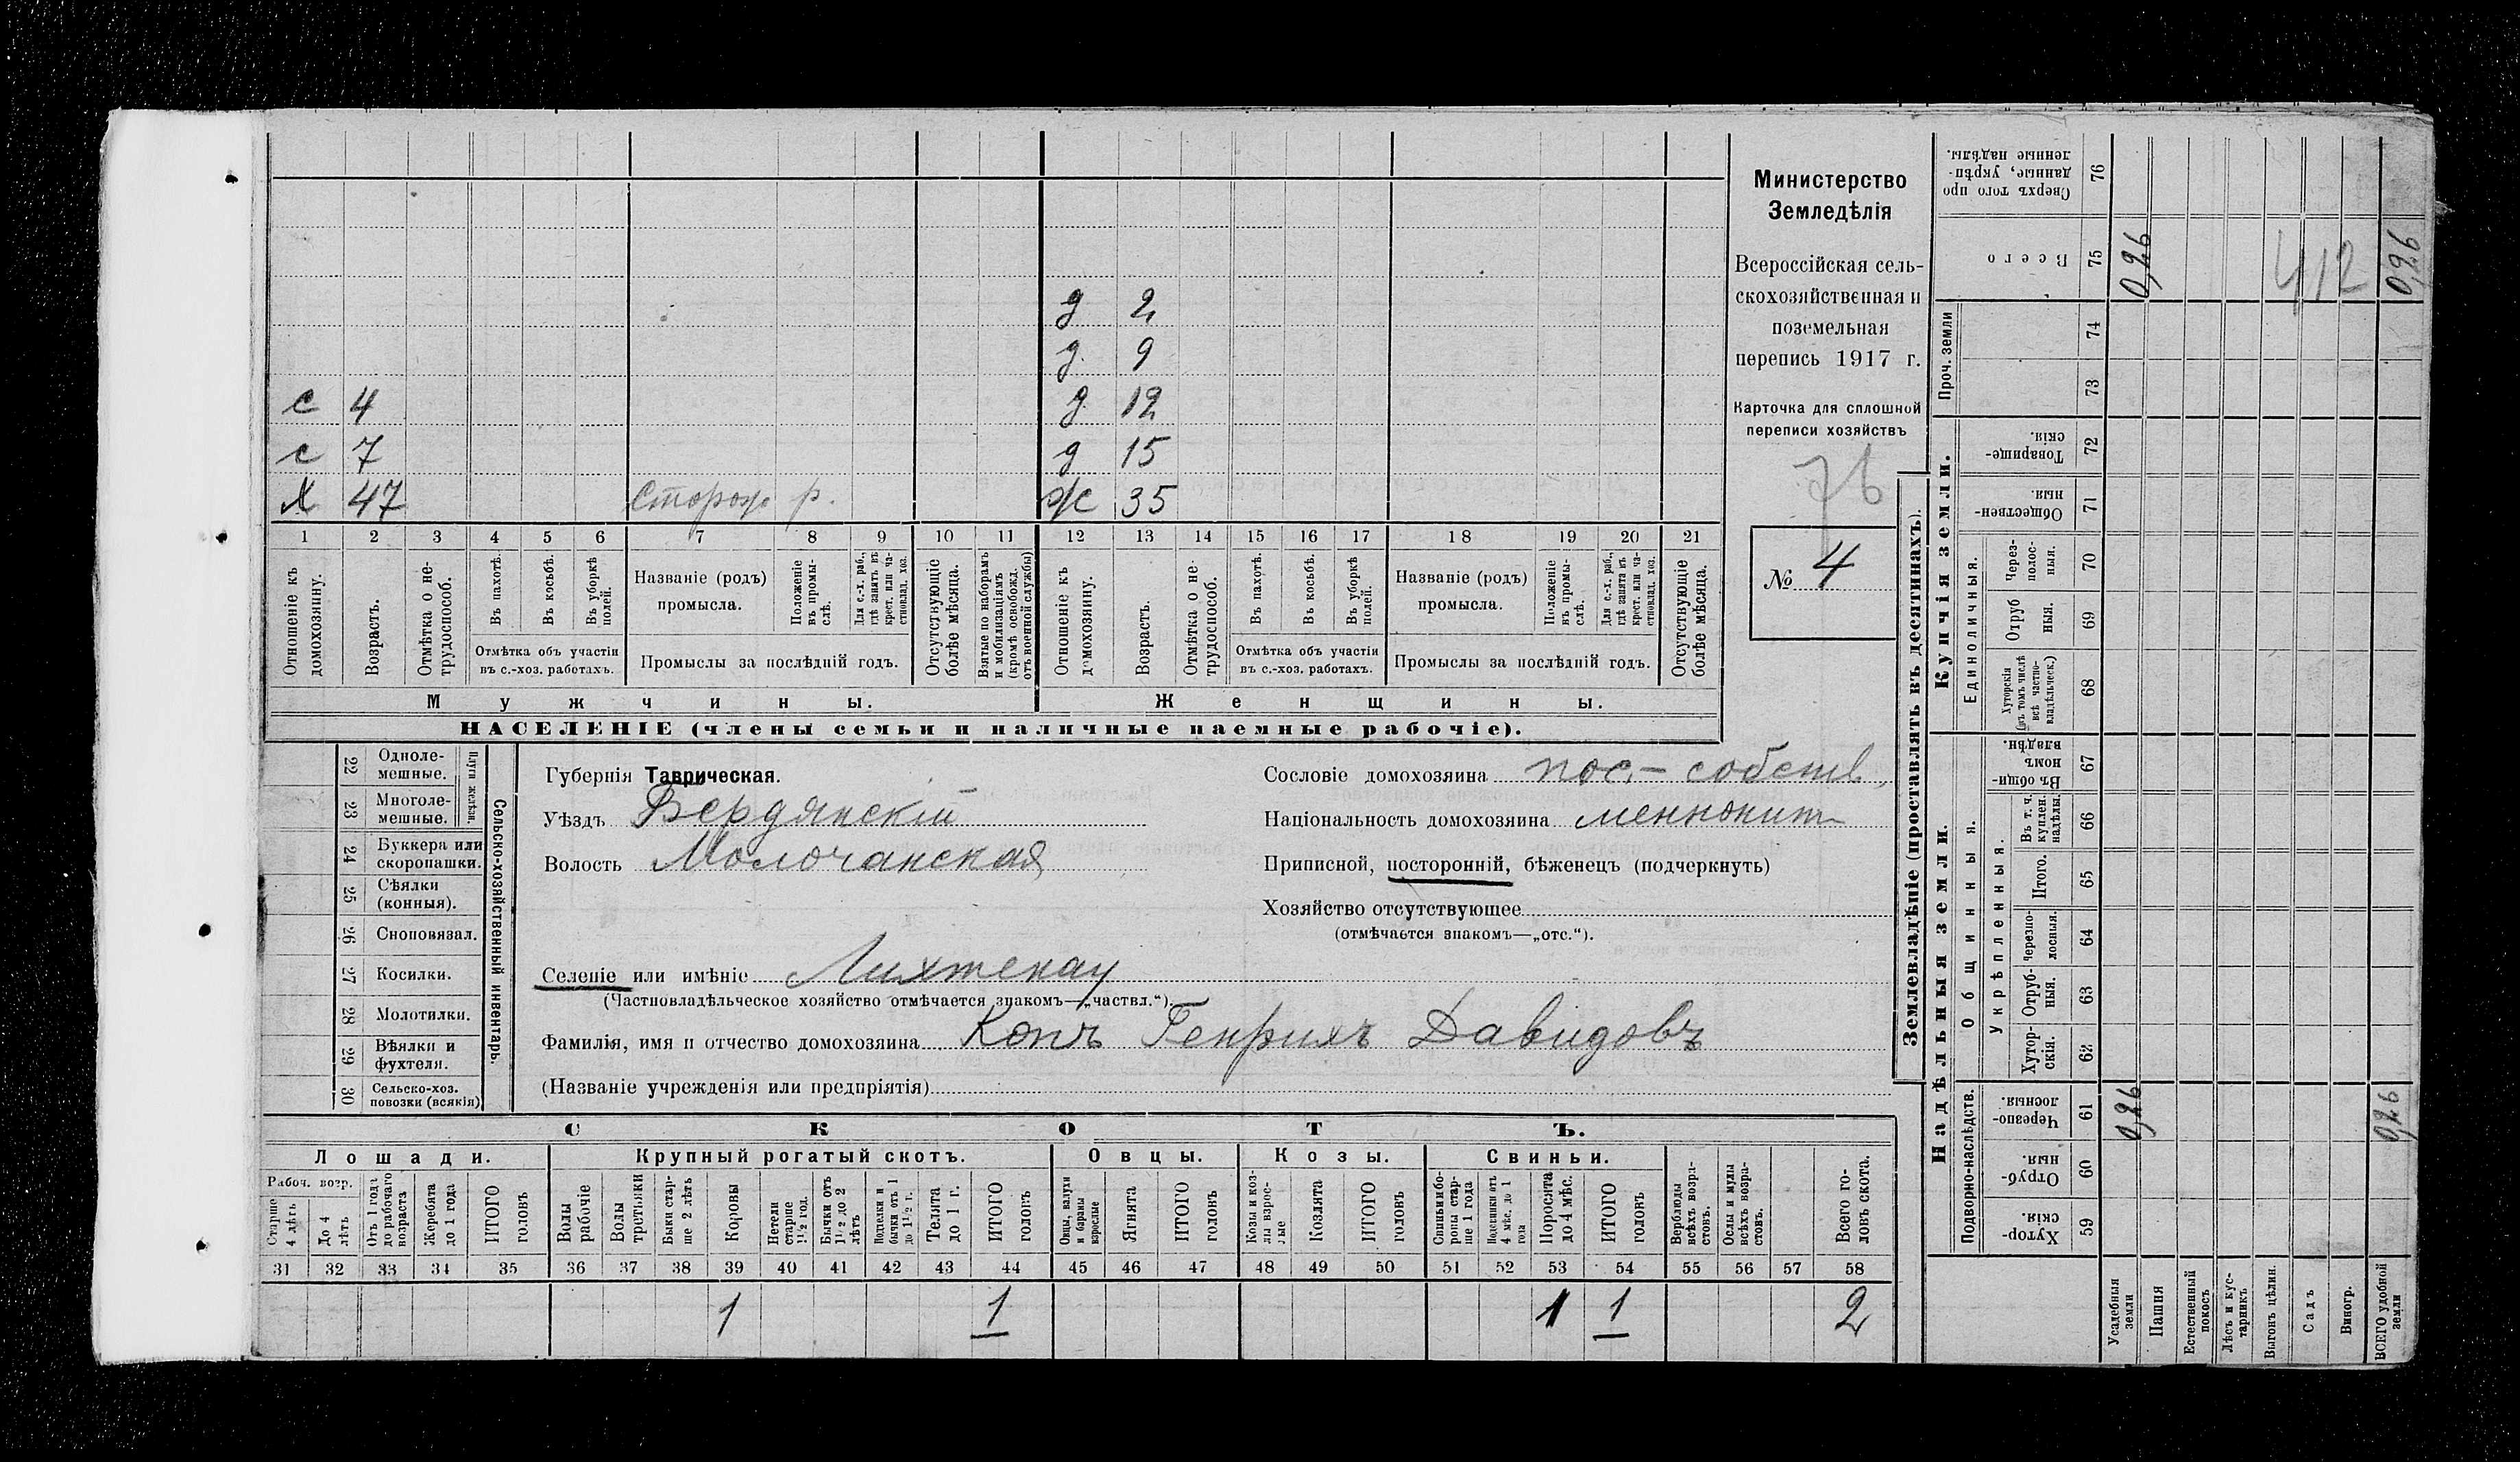 с 4
с 7
х 47 Сторож р.
д 2
д 9
д 12
д 15
ж 35
1 2 3 4 5 6 7 8 9 10 11 12 13 14 15 16 17 18 19 20 21
Отношеніе къ домохозяину.
Возрастъ.
Отмѣтка о не-
трудоспособ.
Въ пахотѣ.
Въ косьбѣ.
Въ уборкѣ
полей.
Отмѣтка объ участіи
въ с.-хоз. работахъ.
Названіе (родъ)
промысла.
Положеніе
въ промы-
слѣ.
Для с.-х. раб.,
гдѣ занятъ въ
крест. или ча-
стновлад. хоз.
Промыслы за послѣдній годъ.
Отсутствующіе
болѣе мѣсяца.
Взятые по наборамъ
и мобилизаціямъ
(кромѣ освобожд.
отъ военной службы)
Отношеніе къ
домохозяину.
Возрастъ.
Отмѣтка о не-
трудоспособ.
Въ пахотѣ.
Въ косьбѣ.
Въ уборкѣ
полей.
Отмѣтка объ участіи
въ с.-хоз. работахъ.
Названіе (родъ)
промысла.
Положеніе
въ промы-
слѣ.
Для с.-х. раб.,
гдѣ занята въ
крест. или ча-
стновлад. хоз.
Промыслы за послѣдній годъ.
Отсутствующіе
болѣе мѣсяца.
Мужчины. Женщины.
НАСЕЛЕНІЕ (члены семьи и наличные наемные рабочіе).
Министерство
Земледѣлія
Всероссійская сель-
скохозяйственная и
поземельная
перепись 1917 г.
Карточка для сплошной
переписи хозяйствъ
76
№ 4
22 Одноле-
мешные.
23 Многоле-
мешные.
Плуги желѣзн.
24 Буккера или
скоропашки.
25 Сѣялки
(конныя).
26 Сноповязал.
27 Косилки.
28 Молотилки.
29 Вѣялки и
фухтеля.
30 Сельско-хоз.
повозки (всякія)
Сельско-хозяйственный инвентарь.
Губернія Таврическая.
Уѣздъ Бердянскій
Волость Молочанская
Селеніе или имѣніе Лихтенау
(Частновладѣльческое хозяйство отмѣчается знакомъ—„частвл.“).
Фамилія, имя и отчество домохозяина Копъ Генрихъ Давидовъ
(Названіе учрежденія или предпріятія)
Сословіе домохозяина пос.-собств.
Національность домохозяина меннонит
Приписной, посторонній, бѣженецъ (подчеркнуть)
Хозяйство отсутствующее
(отмѣчается знакомъ—„отс.“).
СКОТЪ.
Лошади. Крупный рогатый скотъ. Овцы. Козы. Свиньи.
Рабоч. возр.
Старше
4 лѣтъ
До 4
лѣтъ
Отъ 1 года
до рабочаго
возраста
Жеребята
до 1 года
ИТОГО
головъ
Волы
рабочіе
Волы
третьяки
Быки стар-
ше 2 лѣтъ
Коровы
Нетели
старше
1½ год.
Бычки отъ
1½ до 2
лѣтъ
Подтелки и
бычки отъ 1
до 1½ г.
Телята
до 1 г.
ИТОГО
головъ
Овцы, валухи
и бараны
взрослые
Ягнята
ИТОГО
головъ
Козы и коз-
лы взрос-
лые
Козлята
ИТОГО
головъ
Свиньи бо-
ровы стар-
ше 1 года
Подсвинки отъ
4 мѣс. до 1
года
Поросята
до 4 мѣс.
ИТОГО
головъ
Верблюды
всѣхъ возра-
стовъ.
Ослы и мулы
всѣхъ возра-
стовъ.
Всего го-
ловъ скота.
31 32 33 34 35 36 37 38 39 40 41 42 43 44 45 46 47 48 49 50 51 52 53 54 55 56 57 58
1 1 1 1 2
Землевладѣніе (проставлять въ десятинахъ).
Надѣльныя земли. Купчія земли. Проч. земли
Подворно-наслѣдств.
Общинныя.
Укрѣпленныя.
Единоличныя.
Сверхъ того про
данные, укрѣп-
ленные надѣлы. 76
Всего 75
74
73
Товарище-
скія. 72
Обществен-
ныя. 71
Через-
полос-
ныя. 70
Отруб
ныя. 69
Хуторскія
(въ томъ числѣ
всѣ частно-
владѣльческ.) 68
Въ общин-
номъ
владѣн. 67
Въ т. ч.
куплен.
надѣлы. 66
Итого. 65
Черезпо-
лосныя. 64
Отруб-
ныя. 63
Хутор-
скія. 62
Черезпо-
лосныя. 61
Отруб-
ныя. 60
Хутор-
скія. 59
Усадебныя
земли
Пашня
Естественный
покосъ
Лѣсъ и кус-
тарникъ
Выгонъ цѣлин.
Садъ
Виногр.
ВСЕГО удобной
земли
0,26
412
0,26
0,26
0,26